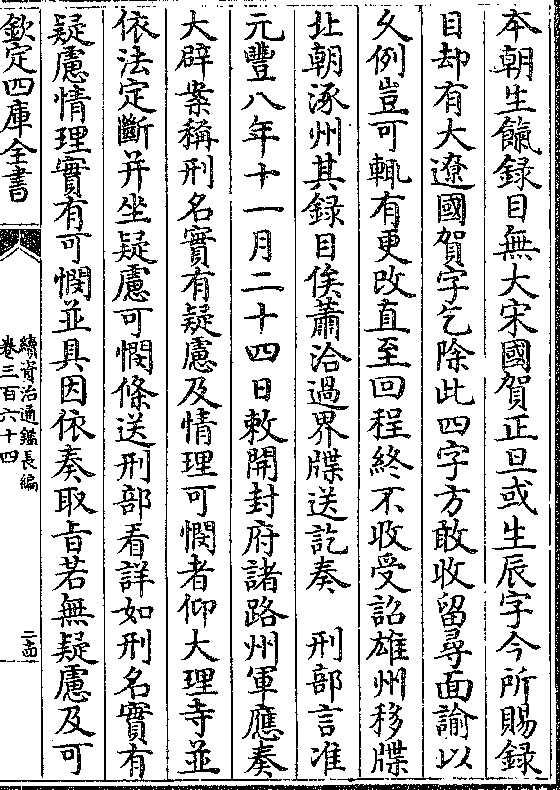 本朝生餼録目無大宋國賀正旦或生辰字今所賜録
目却有大遼國賀字乞除此四字方敢收留尋面諭以
久例豈可輒有更改直至回程終不收受詔雄州移牒
北朝涿州其録目俟蕭洽過界牒送訖奏　刑部言准
元豐八年十一月二十四日敕開封府諸路州軍應奏
大辟案稱刑名實有疑慮及情理可憫者仰大理寺並
依法定斷并坐疑慮可憫條送刑部看詳如刑名實有
疑慮情理實有可憫並具因依奏取旨若無疑慮及可
欽定四庫全書
續資治通鑑長編
卷三百六十四
二面